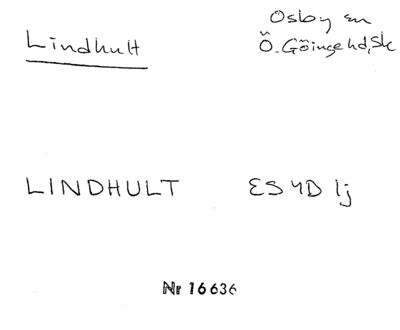 Lindhult
Osby sn
Ö. Göinge hd, Sk
LINDHULT ES4D 1j
Nr 16636